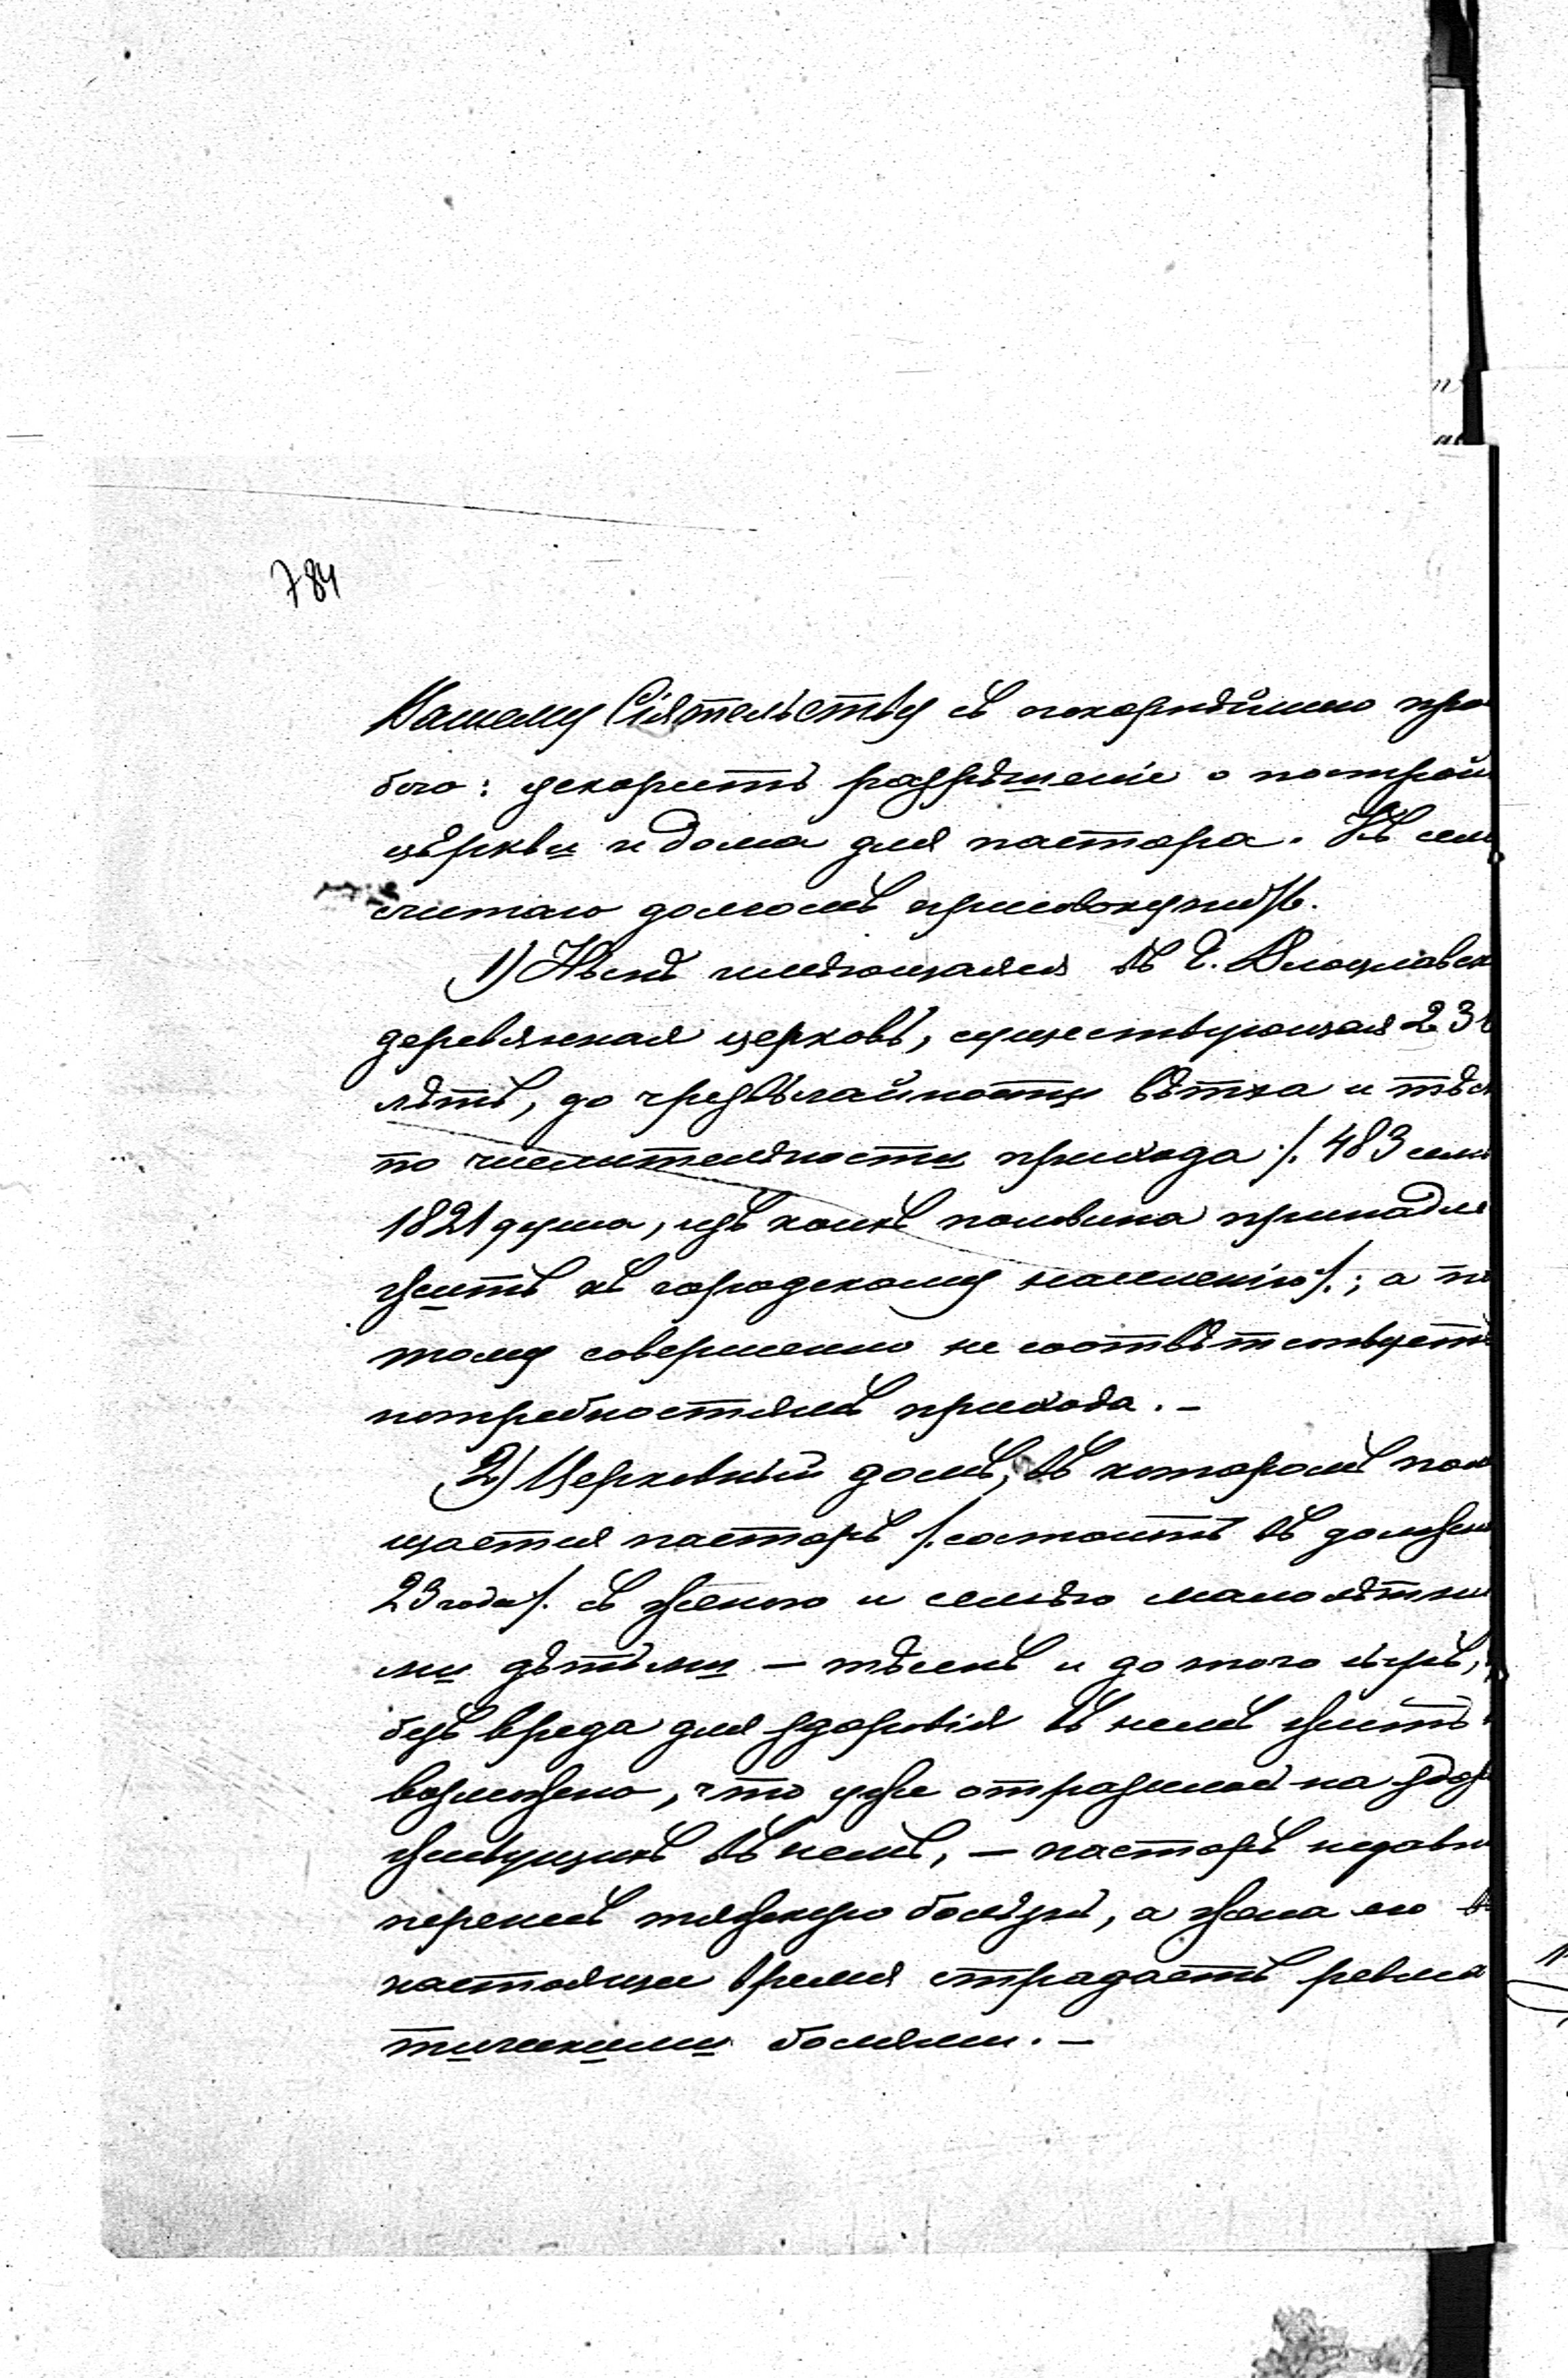 784
Вашему Сіятельству съ покорнѣйшею про
бою: ускорить разрѣшеніе о построй
цѣркви и дома для пастора. Къ сем
считаю долгомъ присовокупить.
1) Нынѣ имѣющаяся въ г. Влоцлавск
деревянная церковь, существующая 23
лѣтъ, до чрезвычайности вѣтха и тѣс
по числительности прихода /. 483 сем
1821 душа, изъ коихъ половина принадле
житъ къ городскому населенію /.; а по
тому совершенно не соотвѣтствуетъ
потребностямъ прихода. –
2) Церковный домъ, въ которомъ пом
щается пасторъ /. состоитъ въ должн
23 года /. съ женою и семью малолѣтни
ми дѣтьми – тѣсенъ и до того сыръ,
безъ вреда для здоровія въ немъ жить
возможно, что уже отразилось на здор
живущихъ въ немъ, – пасторъ недавн
перенесъ тяжкую болѣзнь, а жена его в
настоящее время страдаетъ ревма
тическими болями. –